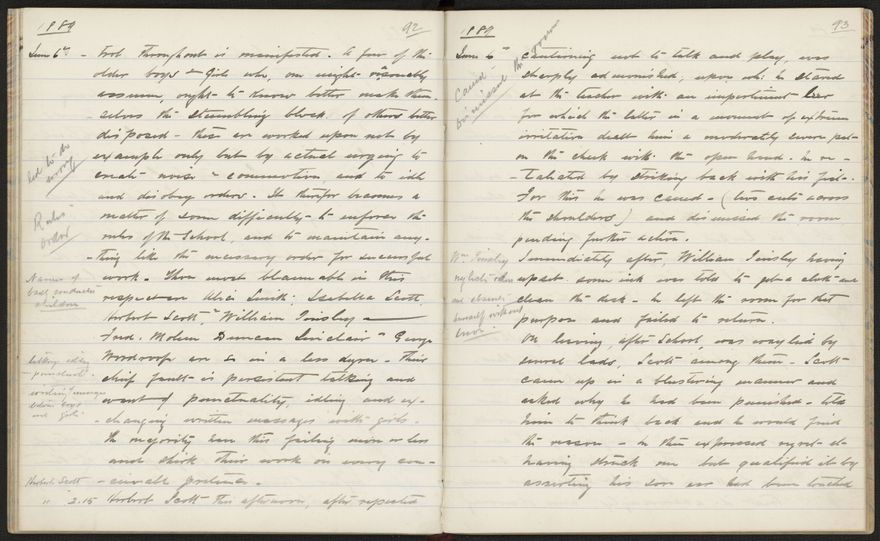 1889
92
June 6th - Tool Throughout is manifested. A few of the
older boys & Girls who, one might reasonably
assume, ought to know better make them-
selves the stumbling block of others better
disposed - these are worked upon not by
example only but by actual urging to
create noise & commotion, and to idle
and disobey orders. It therefore becomes a
matter of some difficulty to enforce the
rules of the School, and to maintain any-
thing like the necessary order for successful
work. Those most blameable in this
respect are Alice Smith, Isabella Scott,
Herbert Scott, & William Tinsley
Fred. Duncan Sinclair & George
Woodroofe are so in a less degree. Their
chief fault is persistent talking and
want of punctuality, idling and ex-
changing written messages with girls.
The majority have this failing more or less
and shirk their work on every con-
ceivable pretence.
led to do
wrong
Rules
order
Names of
badly conducted
children
talking idling
punctual
sending messages
between boys
and girls
Herbert Scott
" 2.15 Herbert Scott this afternoon, after repeated
1889
93
June 6th cautioning not to talk and play, was
sharply admonished, upon whi: he stared
at the teacher with an impertinent leer
for which the latter in a moment of extreme
irritation dealt him a moderately severe pat
on the cheek with the open hand. He re-
taliated by striking back with his fist.
For this he was caned - (two cuts across
the shoulders) and dismissed the room
pending further action.
Immediately after, William Tinsley having
upset some ink was told to get a cloth and
clean the desk - he left the room for that
purpose and failed to return.
On leaving, after School, was waylaid by
several lads, Scott among them - Scott
came up in a blustering manner and
asked why he had been punished - told
him to think back and he would find
the reason - he then expressed regret at
having struck me but qualified it by
asserting his sore ear had been touched
Caned
Dismissed the room
Wm Tinsley
and absents
himself without
leave